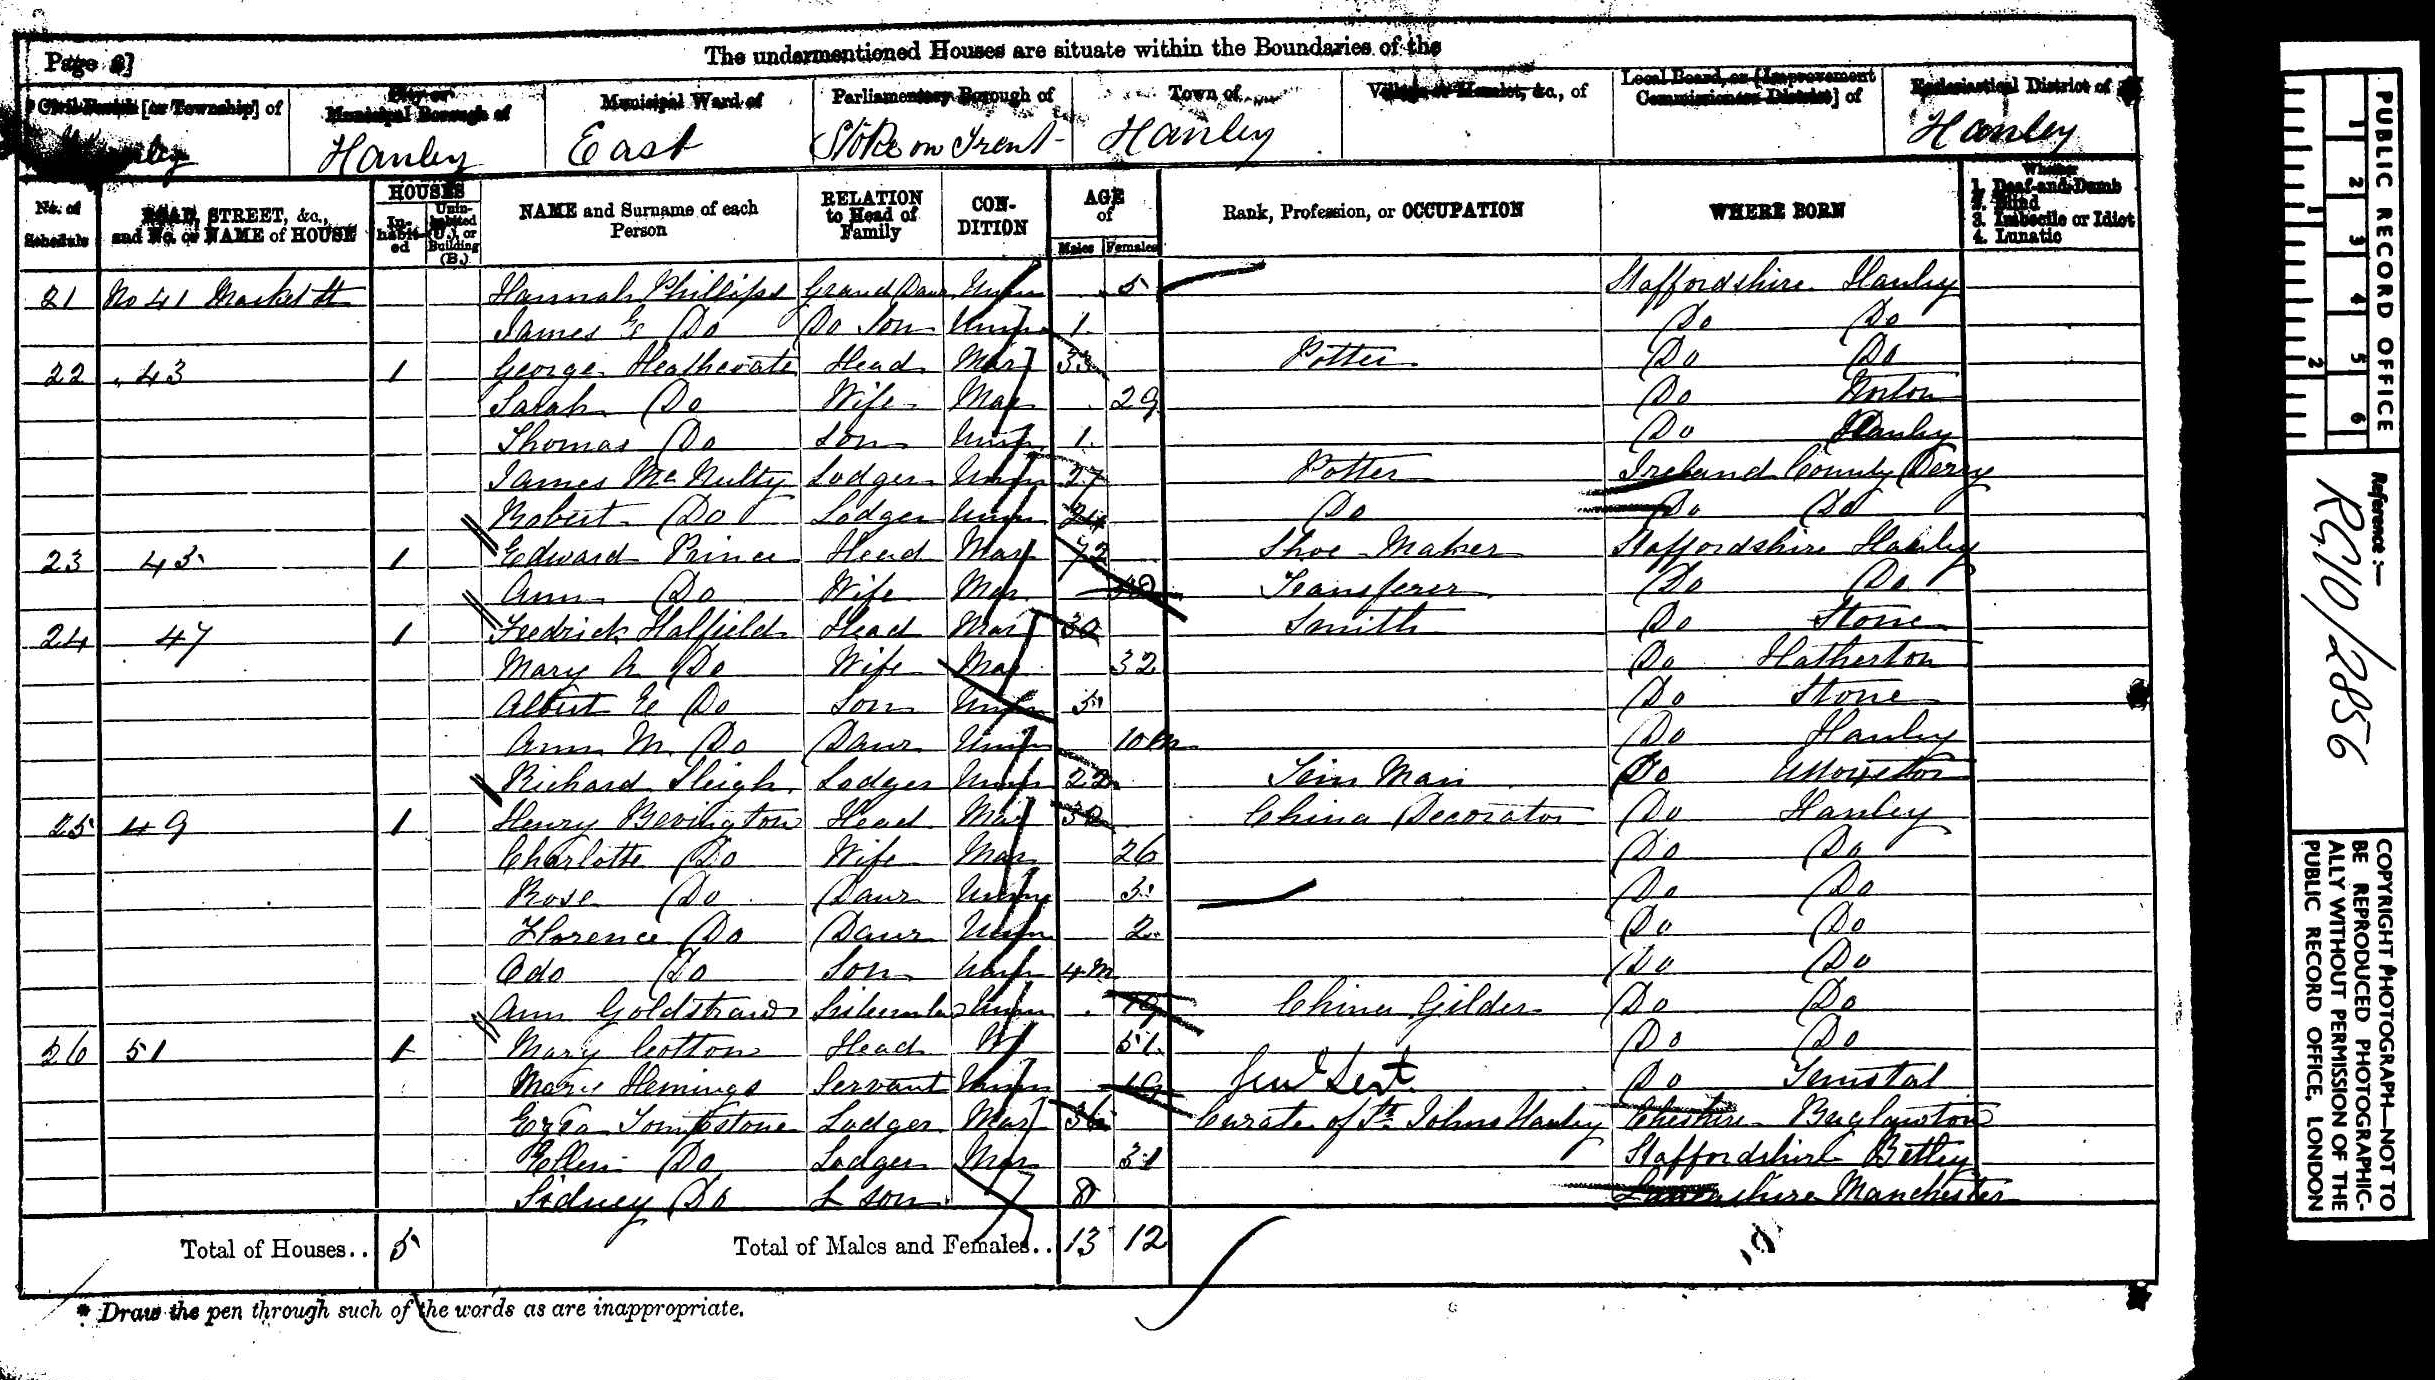 The undermentioned Houses are situate within the Boundaries of the
Page 6]
Civil Parish [or Township] of
City or Municipal Borough of
Municipal Ward of
Parliamentary Borough of
Town of
Village or Hamlet, &c., of
Local Board, or [Improvement Commissioners District] of
Ecclesiastical District of
Hanley Hanley East Stoke on Trent Hanley Hanley
No. of Schedule
ROAD, STREET, &c., and No. or NAME of HOUSE
HOUSES
In-habit-ed
Unin-habited (U.), or Building (B.)
NAME and Surname of each Person
RELATION to Head of Family
CON-DITION
AGE of
Males Females
Rank, Profession, or OCCUPATION
WHERE BORN
Whether
1. Deaf-and-Dumb
2. Blind
3. Imbecile or Idiot
4. Lunatic
21 No 41 Market St Hannah Phillips Grand Daur Unm 5 Staffordshire Hanley
James E Do Do Son Unm 1 Do Do
22 " 43 1 George Heathcoate Head Mar 33 Potter Do Do
Sarah Do Wife Mar 29 Do Norton
Thomas Do Son Unm 1 Do Hanley
James McNulty Lodger Unm 27 Potter Ireland County Derry
Robert Do Lodger Unm 24 Do Do Do
23 45 1 Edward Prince Head Mar 72 Shoe Maker Staffordshire Hanley
Ann Do Wife Mar Transferer Do Do
24 47 1 Fredrick Halfield Head Mar 32 Smith Do Stone
Mary A Do Wife Mar 32 Do Hatherton
Albert E Do Son Unm 5 Do Stone
Ann M. Do Daur Unm 10 m Do Hanley
Richard Sleigh Lodger Unm 22 Do
25 49 1 Henry Bevington Head Mar 32 China Decorator Do Hanley
Charlotte Do Wife Mar 26 Do Do
Rose Do Daur Unm 3 Do Do
Florence Do Daur Unm 2 Do Do
Odo Do Son Unm 4 m Do Do
Ann Goldstraw Unm 19 China Gilder Do Do
26 51 1 Mary Cotton Head W 51 Do Do
Mary Hemings Servant Unm 19 Genl Servt Do Tunstal
Ezra Tompstone Lodger Mar 36 Curate of St Johns Hanley Cheshire Buglawton
Ellen Do Lodger Mar 31 Staffordshire Betley
Sidney Do L son 8 Lancashire Manchester
Total of Houses.. 5 Total of Males and Females.. 13 12
* Draw the pen through such of the words as are inappropriate.
PUBLIC RECORD OFFICE
1 2 3 4 5 6
1 2
Reference :—
RG10/2856
COPYRIGHT PHOTOGRAPH—NOT TO
BE REPRODUCED PHOTOGRAPHIC-
ALLY WITHOUT PERMISSION OF THE
PUBLIC RECORD OFFICE, LONDON